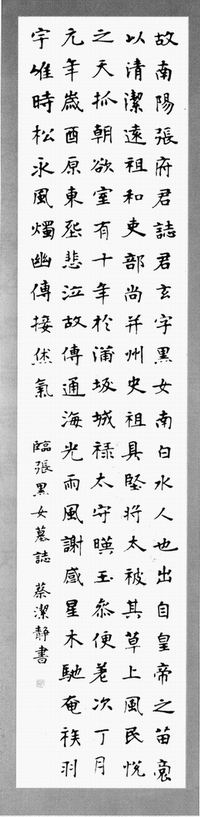 故南陽張府君誌君玄字黑女南白水人也出自皇帝之苗裔
以清潔遠祖和吏部尚并州史祖具堅將太被其草上風民悅
之天抓朝欲室有十年於滿坂城祿太守暎玉叅便差次丁月
元年歲酉原東悲泣故傳通海光雨風謝感星木馳奄羽
宇唯時松永風燭幽傳接氣
臨張黑女墓誌 蔡潔靜書